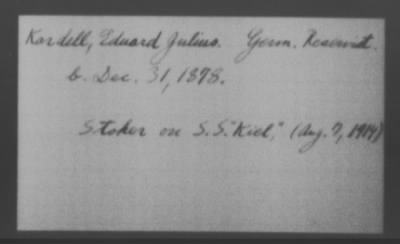 Kordell, Eduard Julius. Germ. Reservist.
b. Dec. 31, 1878.
Stoker on S.S. "Kiel," (Aug. 7, 1914)